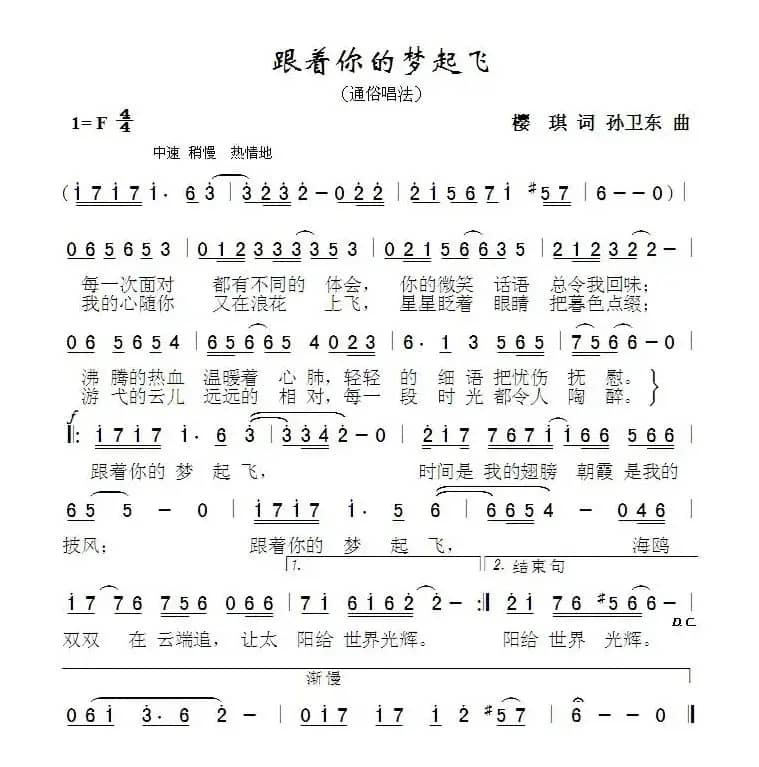 跟着你的梦起飞
（通俗唱法）
1= F 4/4 樱 琪 词 孙卫东 曲
中速 稍慢 热情地
(i 7 i 7 i· 6 3 | 3 2 3 2 – 0 2 2 | 2 1 5 6 7 i #5 7 | 6 – – 0) |
0 6 5 6 5 3 | 0 1 2 3 3 3 3 5 3 | 0 2 1 5 6 6 3 5 | 2 1 2 3 2 2 – |
每一次面对 都有不同的 体会， 你的微笑 话语 总令我回味；
我的心随你 又在浪花 上飞， 星星眨着 眼睛 把暮色点缀；
0 6 5 6 5 4 | 6 5 6 6 5 4 0 2 3 | 6· 1 3 5 6 5 | 7 5 6 6 – 0 |
沸 腾的热血 温暖着 心 肺，轻轻 的 细 语 把忧伤 抚 慰。
游 弋的云儿 远远的 相 对，每一 段 时 光 都令人 陶 醉。
f
‖: i 7 i 7 i· 6 3 | 3 3 4 2 – 0 | 2 i 7 7 6 7 i i 6 6 5 6 6 |
跟着你的 梦 起 飞， 时间是 我的翅膀 朝霞 是我的
6 5 5 – 0 | i 7 i 7 i· 5 6 | 6 6 5 4 – 0 4 6 |
披风； 跟着你的 梦 起 飞， 海鸥
1. 2. 结束句
i 7 7 6 7 5 6 0 6 6 | 7 i 6 i 6 2 2 – :‖ 2 i 7 6 #5 6 6 – |
D.C.
双双 在 云端追，让太 阳给 世界光辉。 阳给 世界 光辉。
渐慢
0 6 i 3· 6 2 – | 0 i 7 i 7 i 2 #5 7 | 6 – – 0 ‖